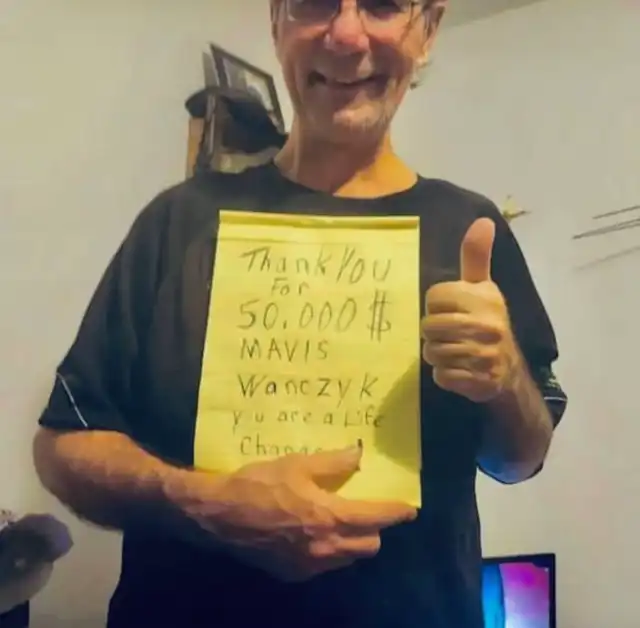 Thank YOU
For
50.000 $
MAVIS
Wanczyk
You are a Life